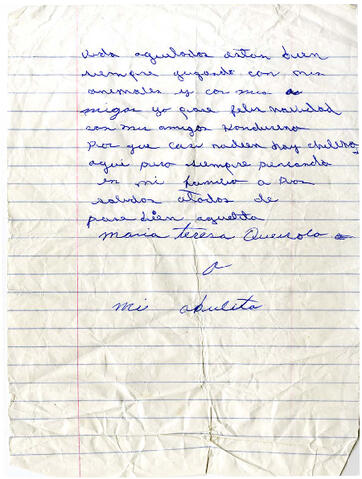 Uds aguelados estan bien
siempre jugando con mis
anemales y con mis a
migos yo pase feliz navidad
con mis amigos Hondureno
Por que casi nadien hay chileno
aqui paso siempre pensando
en mi familia a Dios
saludos atodos de
pase bien aguelita
Maria Teresa Queirolo
a
mi abulita